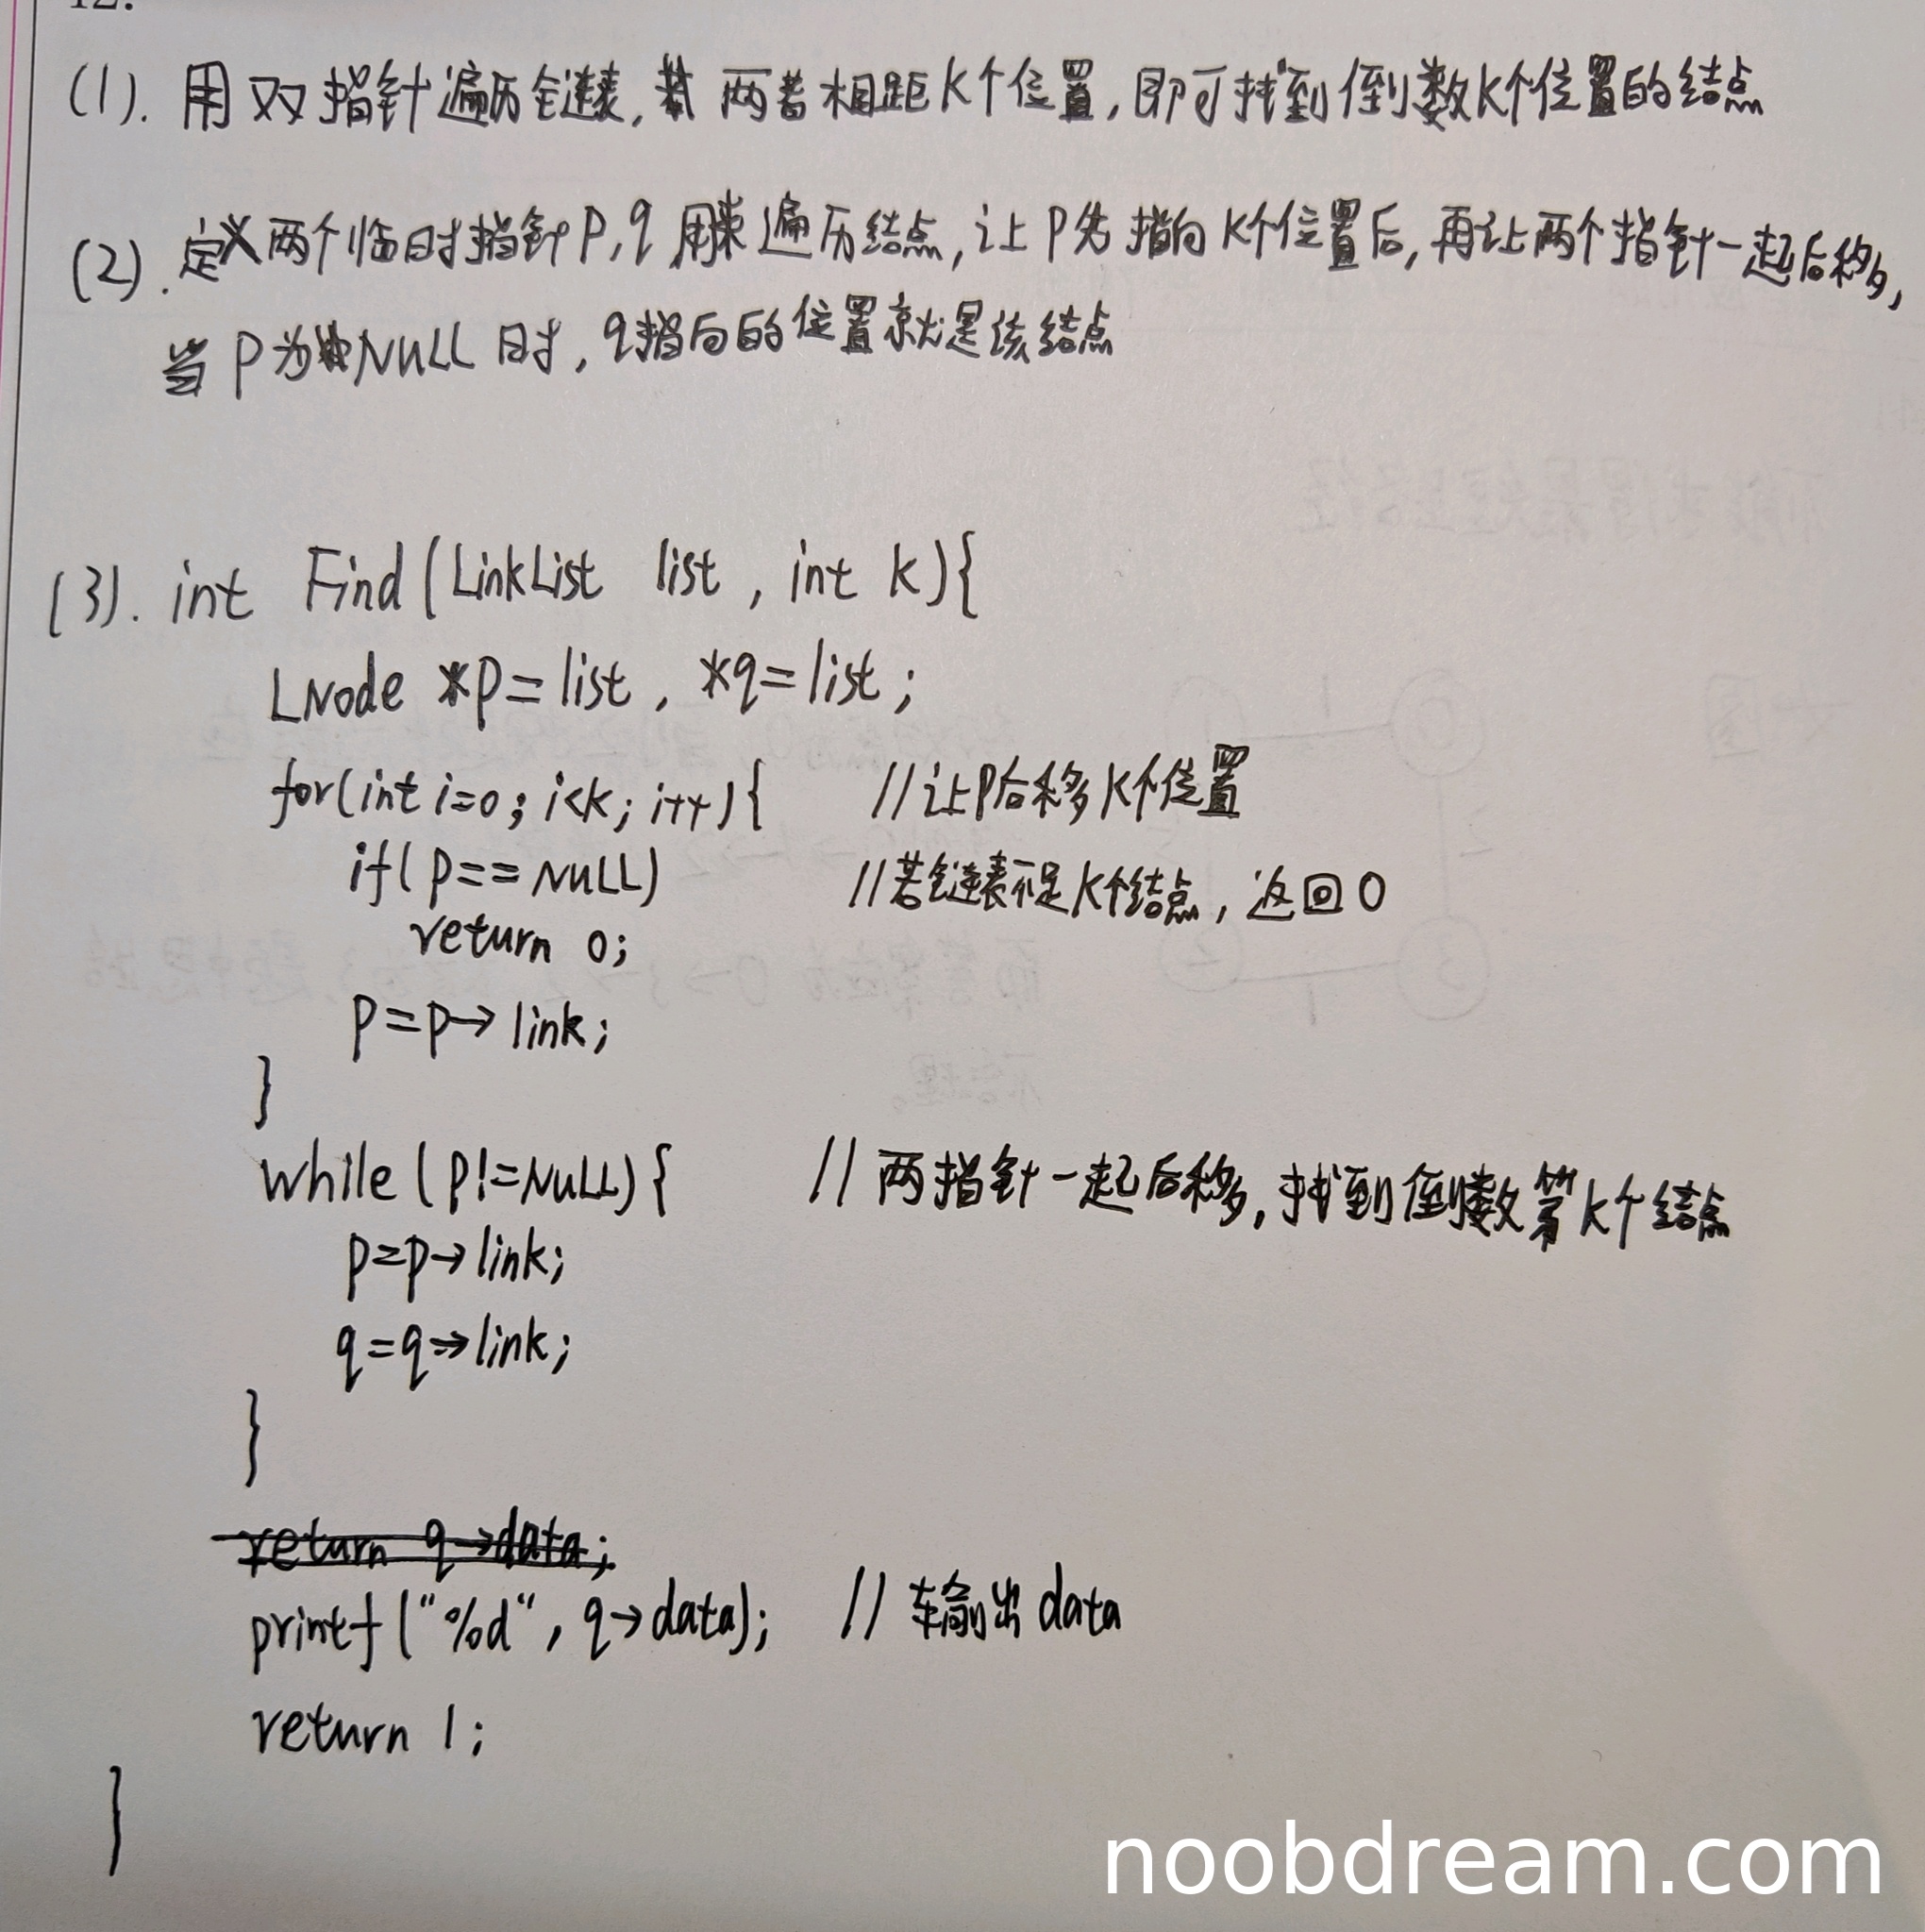 12.
(1). 用双指针遍历全链表, 若两者相距K个位置, 即可找到倒数K个位置的结点
(2). 定义两个临时指针P,q 用来遍历结点, 让P先指向K个位置后, 再让两个指针一起后移,
当P为NULL时, q指向的位置就是该结点
(3). int Find(LinkList list, int k){
LNode *p=list, *q=list;
for(int i=0; i<k; i++){ //让P后移K个位置
if(p==NULL) //若链表不足K个结点, 返回0
return 0;
p=p→link;
}
while(p!=NULL){ //两指针一起后移, 找到倒数第K个结点
p=p→link;
q=q→link;
}
return q→data;
printf("%d", q→data); //输出data
return 1;
}
noobdream.com